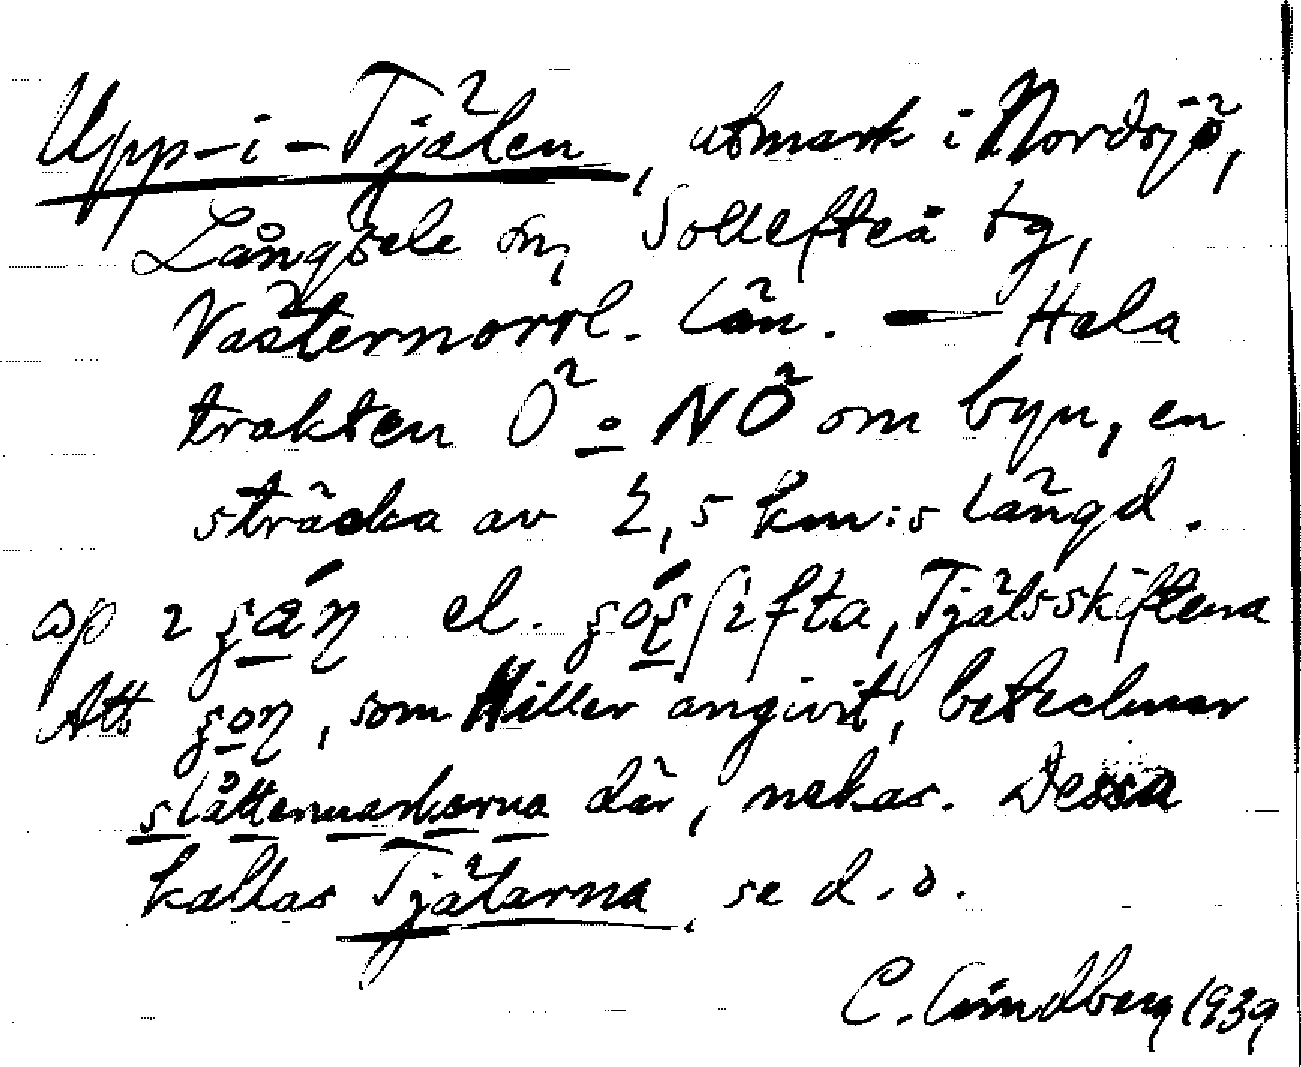 Upp-i-Tjälen, utmark i Nordsjö,
Långsele sn, Sollefteå tg,
Västernorrl. län. — Hela
trakten Ö o NÖ om byn, en
sträcka av 2,5 km:s längd.
el. Tjälsskiftena
Att, som Hiller angivit, betecknar
slåttermarkerna där, nekas. Dessa
kallas Tjälarna, se d.o.
C. Lindberg 1939